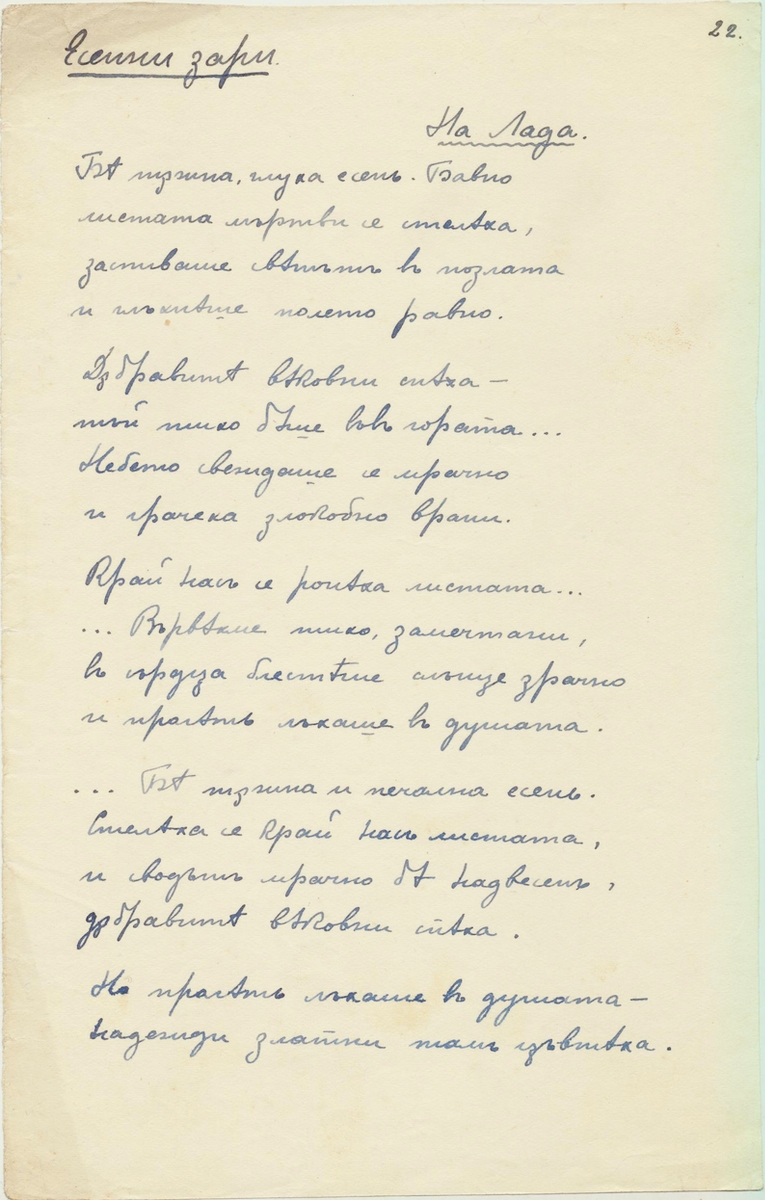 22.
Есенни зари.
На Лада.
Бѣ тѫжна, глуха есень. Бавно
листата мъртви се стелѣха,
застиваше свѣтътъ въ позлата
и глъхнѣше полето равно.
Дѫбравитѣ вѣковни спѣха –
тъй тихо бѣше въвъ гората...
Небето свеждаше се мрачно
и грачеха злокобно врани.
Край насъ се ронѣха листата...
... Вървѣхме тихо, замечтани,
въ сърдца блестѣше слънце зрачно
и пролѣтъ лъхаше въ душата.
... Бѣ тѫжна и печална есень.
Стелѣха се край насъ листата,
и сводътъ мрачно бѣ надвесенъ,
дѫбравитѣ вѣковни спѣха.
Но пролѣтъ лъхаше въ душата –
надежди златни тамъ цъвтѣха.